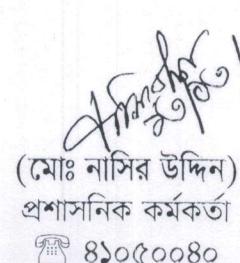 (মোঃ নাসির উদ্দিন)
প্রশাসনিক কর্মকর্তা
৪১০৫০০৪০